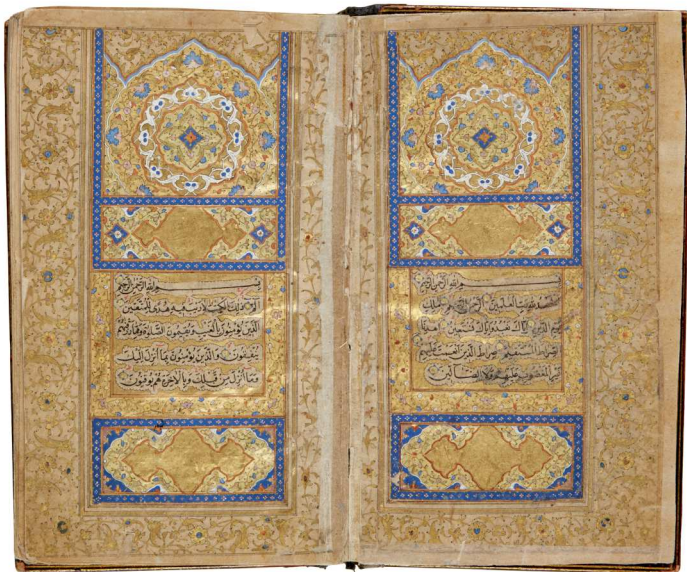 بِسْمِ اللهِ الرَّحْمنِ الرَّحِيمِ
الْحَمْدُ لِلهِ رَبِّ الْعَالَمِينَ الرَّحْمنِ الرَّحِيمِ مَلِكِ
يَوْمِ الدِّينِ اِيَّاكَ نَعْبُدُ وَاِيَّاكَ نَسْتَعِينُ اِهْدِنَا
الصِّرَاطَ الْمُسْتَقِيمَ صِرَاطَ الَّذِينَ اَنْعَمْتَ عَلَيْهِمْ
غَيْرِ الْمَغْضُوبِ عَلَيْهِمْ وَلَا الضَّالِّينَ
بِسْمِ اللهِ الرَّحْمنِ الرَّحِيمِ
الم ذلِكَ الْكِتبُ لَا رَيْبَ فِيهِ هُدًى لِلْمُتَّقِينَ
الَّذِينَ يُؤْمِنُونَ بِالْغَيْبِ وَيُقِيمُونَ الصَّلوةَ وَمِمَّا رَزَقْنهُمْ
يُنْفِقُونَ وَالَّذِينَ يُؤْمِنُونَ بِمَا اُنْزِلَ اِلَيْكَ
وَمَا اُنْزِلَ مِنْ قَبْلِكَ وَبِالْاخِرَةِ هُمْ يُوقِنُونَ